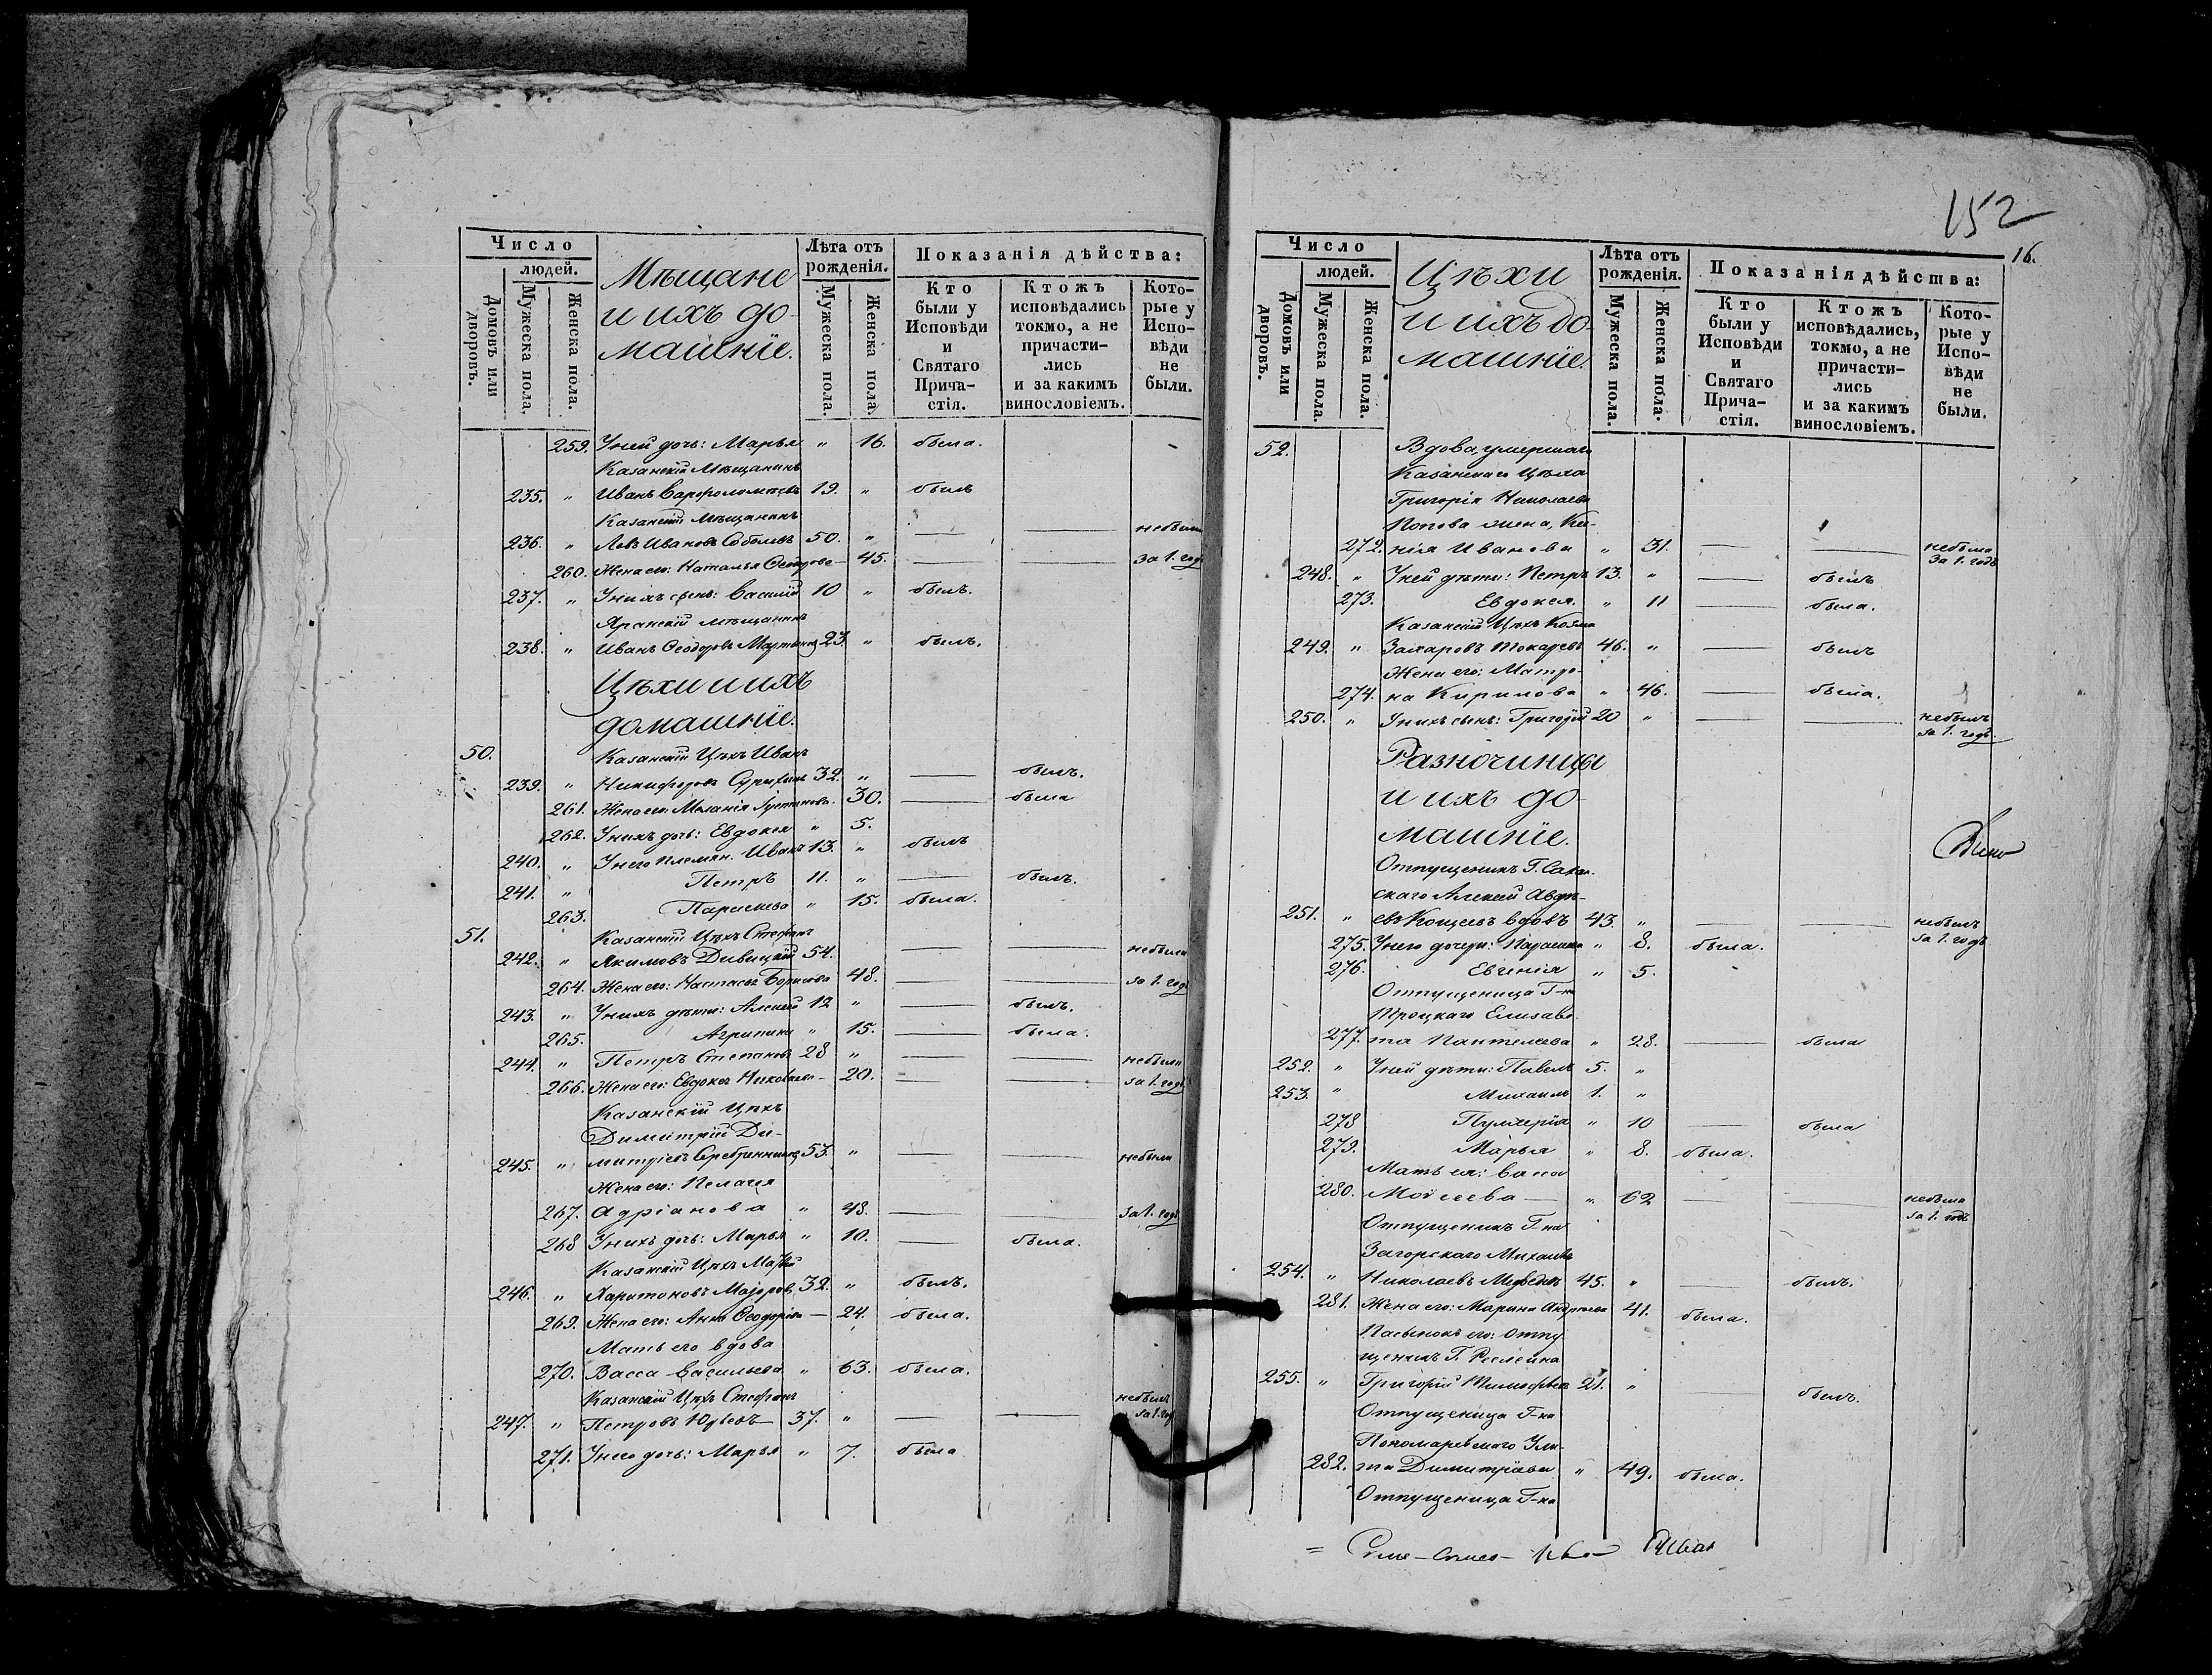 Число
людей.
Домовъ или дворовъ.
Мужеска пола.
Женска пола.
Мѣщане
и ихъ до-
машніе.
Лѣта отъ рожденія.
Мужеска пола.
Женска пола
Показанія дѣйства:
Кто были у Исповѣди и Святаго Прича-стія.
Ктожъ исповѣдались токмо, а не причасти-лись и за какимъ винословіемъ.
Кото-рые у Испо-вѣди не были.
259. У ней дочь: Марья " 16. была.
Казанскій Мѣщанинъ
235. " Иванъ Варфоломѣевъ 19. " былъ
Казанскій Мѣщанинъ
236. " Левъ Ивановъ Соболевъ 50. " — — небыли
260. Жена его: Наталья Ѳеодорова — 45. — — за 1. годъ
237. " У нихъ сынъ: Василій 10 " былъ.
Яранскій мѣщанинъ
238. " Иванъ Ѳеодоровъ 23. " былъ.
Цѣхи и ихъ
домашніе.
50. Казанскій Цѣхъ Иванъ
239. " Никифоровъ 32. " — былъ.
261. Жена его: Меланія 30. — была
262. У нихъ дочь: Евдокея " 5.
240. " У него племян. Иванъ 13. " былъ
241. " Петръ 11. " — былъ.
263. Параскева " 15. была.
51. Казанскій Цѣхъ Стефанъ
242. " Якимовъ Дивицкій 54. — — небыли
264. Жена его: Настасья Борисова 48. — — за 1. годъ
243. " У нихъ дѣти: Алексѣй 12 " — былъ.
265. Агрипина " 15. — была.
244. " Петръ Степановъ 28 " — — небыли
266. Жена его: Евдокея Николаева — 20. — — за 1. годъ
Казанскій Цѣхъ
Димитрій Ди-
245. " митріевъ Серебренниковъ 53. " — — небыли
Жена его: Пелагея
267. Адріанова " 48. — — за 1. годъ
268 У нихъ дочь: Марья " 10. — была.
Казанскій Цѣхъ
246. " Харитоновъ Маіоровъ 32. " былъ.
269. Жена его: Анна Ѳеодорова — 24. была.
Мать его вдова
270. Васса Васильева " 63. была.
Казанскій Цѣхъ Стефанъ небылъ
247. " Петровъ Юрьевъ — 37. " — — за 1. годъ
271. У него дочь: Марья " 7. была
152
16.
Число
людей.
Домовъ или дворовъ.
Мужеска пола.
Женска пола.
Цѣхи
и ихъ до-
машніе.
Лѣта отъ рожденія.
Мужеска пола.
Женска пола.
Показанія дѣйства:
Кто были у Исповѣди и Святаго Прича-стія.
Ктожъ исповѣдались, токмо, а не причасти-лись и за какимъ винословіемъ.
Кото-рые у Испо-вѣди не были.
52. Вдова, умершаго
Казанскаго Цѣха
Григорія Николаева
Попова жена, Ксе-
272. нія Иванова " 31. — — небыла за 1. годъ
248. " У ней дѣти: Петръ 13. " — былъ
273. Евдокея. " 11 — была.
Казанскій Цѣхъ Козма
249. " Захаровъ Токаревъ 46. " — былъ
Жена его: Матре-
274. на Кирилова " 46. — была.
250. " У нихъ сынъ: Григорій 20 " — — небылъ за 1. годъ.
Разночинцы
и ихъ до-
машніе.
Отпущеникъ Г.
скаго Алексѣй Авдѣ-
251. " евъ Кощеевъ вдовъ 43. " — — небылъ за 1. годъ
275. У него дочери: Параскева " 8. была.
276. Евгенія " 5.
Отпущеница Г-на
Троцкаго Елизаве-
277. та Пантелеева " 28. — была
252. " У ней дѣти: Павелъ 5. "
253. " Михаилъ 1. "
278 Пулхерія " 10 — была
279. Марья " 8. была.
Мать ея: Васса
280. Моисеева — " 62 — — небыла за 1. годъ
Отпущеникъ Г-на
Загорскаго Михаилъ
254. " Николаевъ Медведевъ 45. " — былъ.
281. Жена его: Марина Андреева 41. была.
Пасынокъ его: отпу-
щеникъ Г.
255. " Григорій Тимофеевъ 21. " — былъ.
Отпущеница Г-на
Пономаревскаго Ули-
282. та Димитріева " 49. была.
Отпущеница Г-на